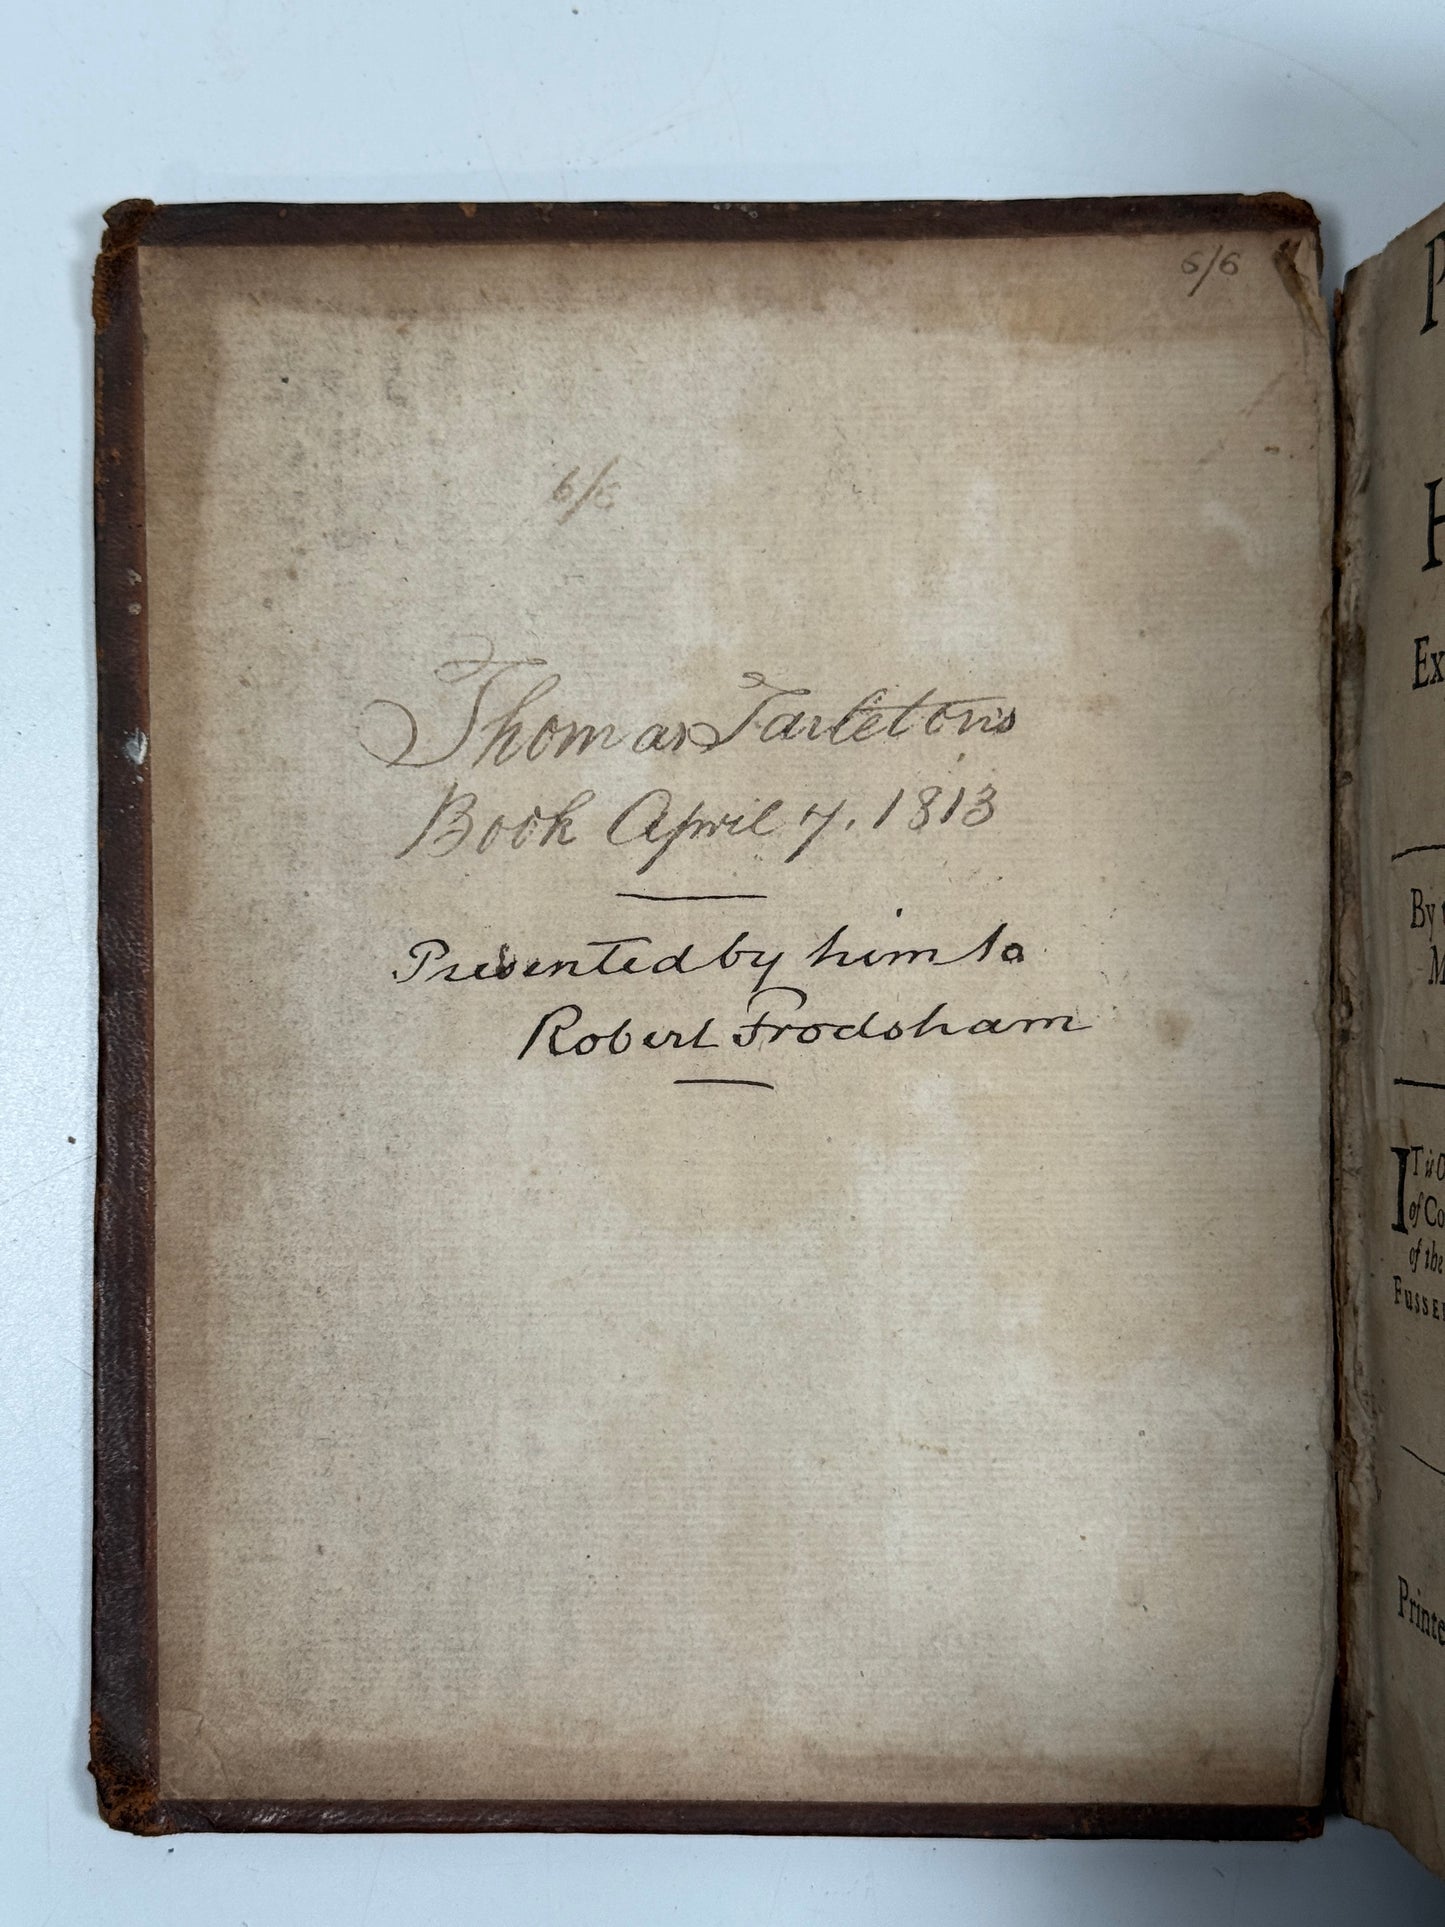 6/6
6/6
Thomas Tarletons
Book April 7. 1813
Presented by him to
Robert Frodsham
P
H
Ex
By
M
IT is
of Co
of the
FUSSE
Printe